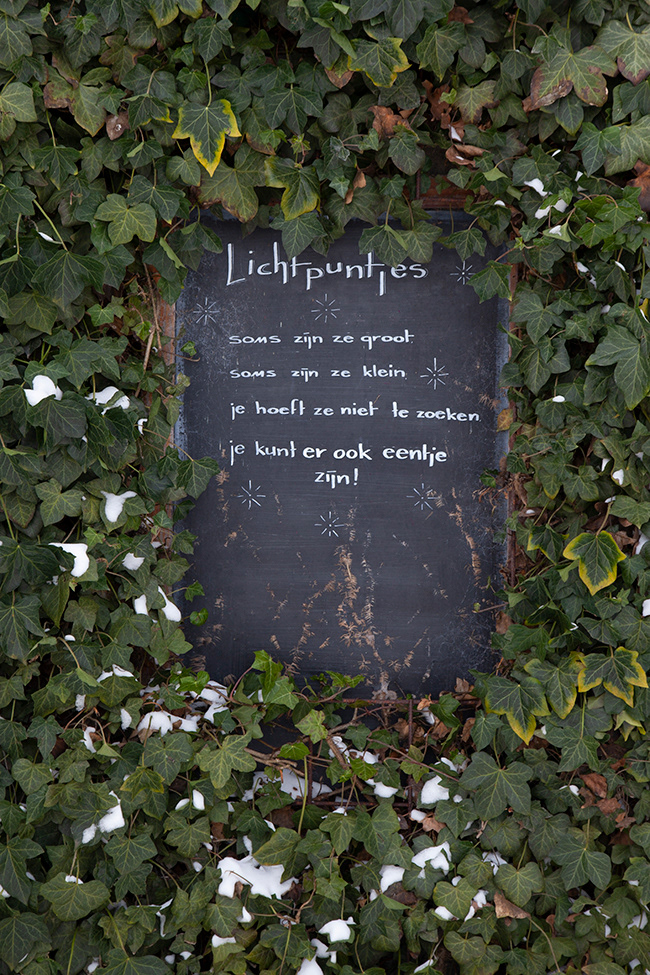 Lichtpuntjes
soms zijn ze groot
soms zijn ze klein
je hoeft ze niet te zoeken
je kunt er ook eentje
zijn!